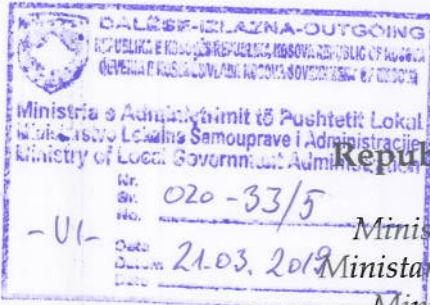 DALËSE-IZLAZNA-OUTGOING
REPUBLIKA E KOSOVËS-REPUBLIKA KOSOVA-REPUBLIC OF KOSOVA
QEVERIA E KOSOVËS/VLADA KOSOVA/GOVERNMENT OF KOSOVA
Ministria e Administrimit të Pushtetit Lokal
Ministarstvo Lokalne Samouprave i Administracije
Ministry of Local Government Administration
Repub
Nr.
Br. 020-33/5
No.
-VI-
Minis
Data
Datum 21.03.2019
Date
Ministar
Min